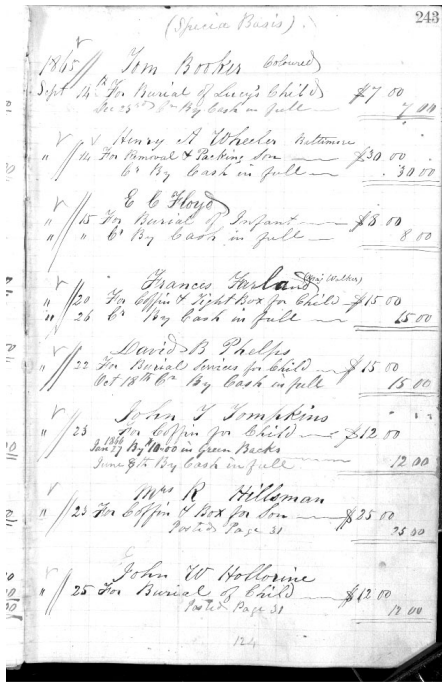 243
(Specie Basis)
1865 Tom Booker Coloured
Sept 14 For Burial of Lucy's Child $7 00
Dec 23rd Cr By Cash in full 7 00
Henry A Wheeler Baltimore
" 14 For Removal & Packing Son $30 00
Cr By Cash in full 30 00
E C Floyd
" 15 For Burial of Infant $8 00
" " Cr By Cash in full 8 00
Frances Farland (Maj Walker)
" 20 For Coffin & Tight Box for Child $15 00
" 26 Cr By Cash in full 15 00
David B Phelps
" 22 For Burial Services for Child $15 00
Oct 18th Cr By Cash in full 15 00
John T Tompkins
" 23 For Coffin for Child $12 00
1866
Jan 27 By $10.00 in Green Backs
June 8th By Cash in full 12 00
Mrs R Hillsman
" 23 For Coffin & Box for Son $25 00
Posted Page 31 25 00
John W Hollorine
" 25 For Burial of Child $12 00
Posted Page 31 12 00
124